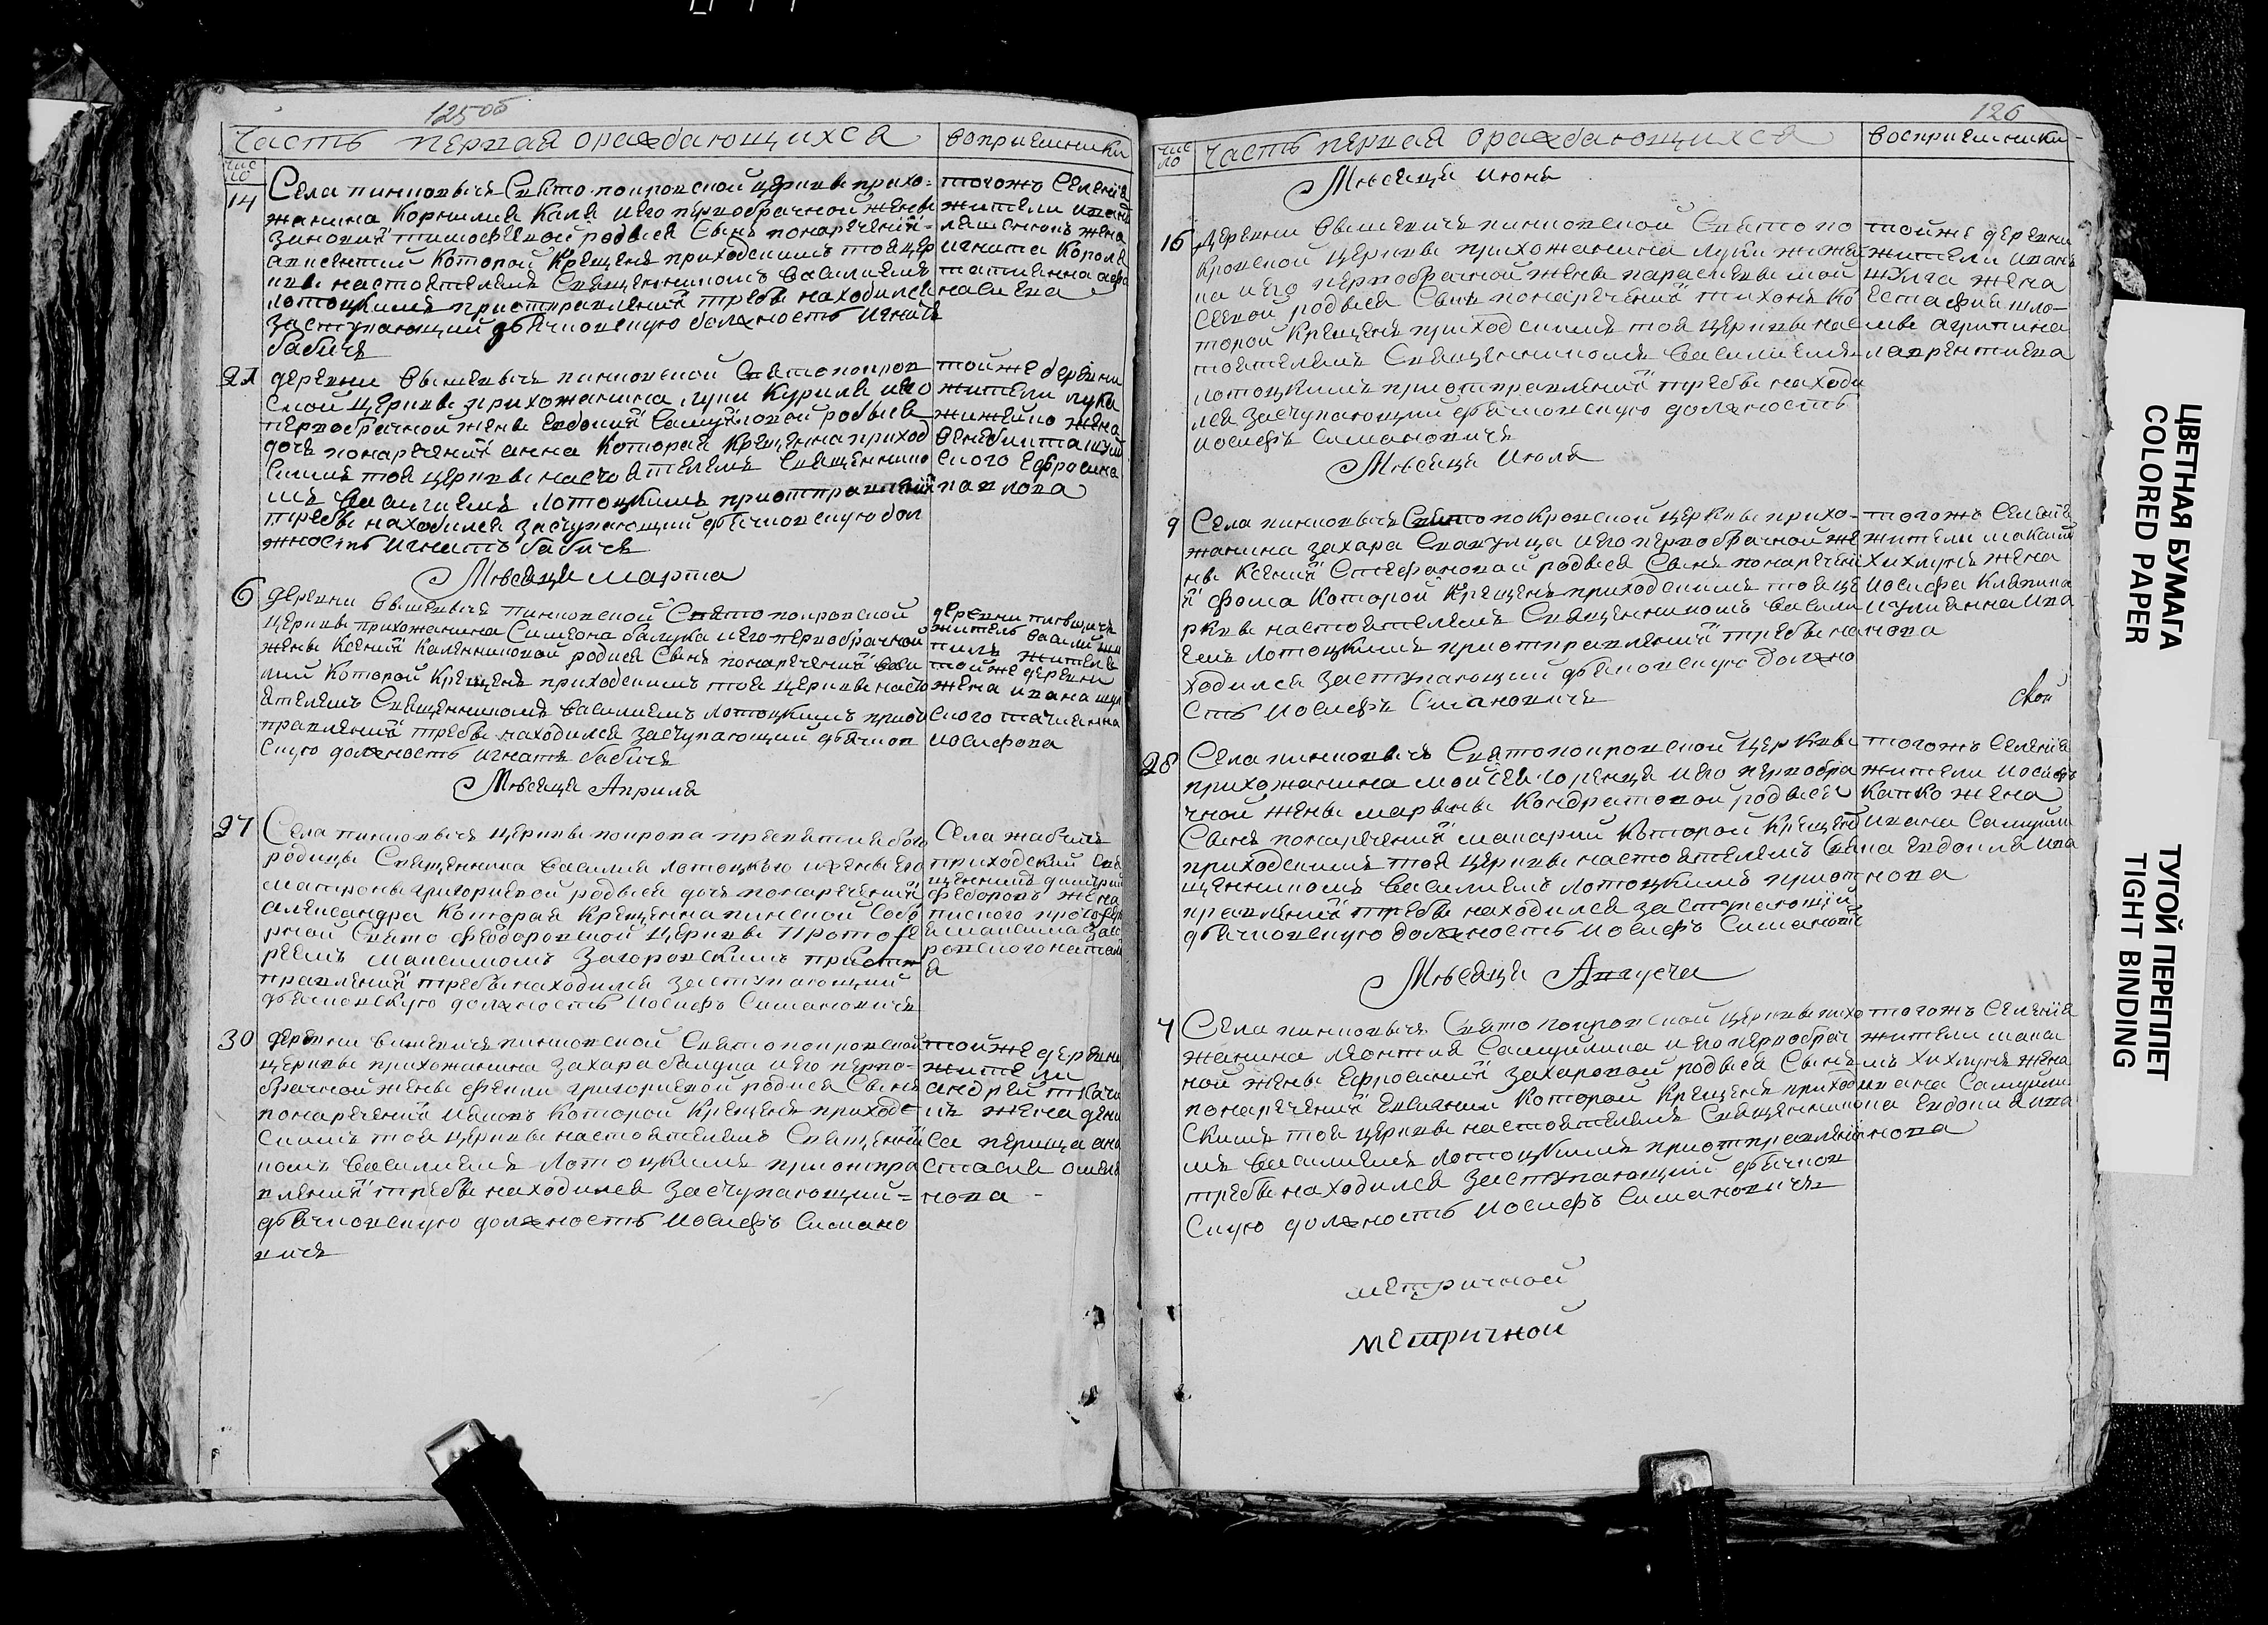 125 об
часть первая ораждающихса
вопрiемники
чис
ло
14
Села пинковичъ Свято покровской церкви прихо-
жанина Корнилия Каля и его первобрачной жены
зиновiй тимофѣевой родился Сынъ понареченiй-
авксентий Которой Крещенъ приходскимъ тоя цер
кви настоятелемъ Священникомъ василиемъ
лотоцкимъ приотправленiй требы находился
заступающий дьячковскую должность игнатъ
бабичъ
тогожъ Селенiя
жители иванъ
жена
игната Короля
татианна афа
насиева
21
деревни вышевичъ пинковской Святопокров
ской церкви прихожанина луки Курила и его
первобрачной жены евдокiй Самуйловой родилса
дочь понареченiй анна Которая Крещенна приход
скимъ тоя церкви настоятелемъ Священнико
мъ василиемъ лотоцкимъ приотправленiй
требы находился заступающий дьячковскую дол
жность игнатъ бабичъ
тойже деревни
жители лука
жижейко жена
ского ефросина
павлова
Мѣсяца марта
6
деревни вышевичъ пинковской Свято покровской
церкви прихожанина Симеона балука и его первобрачной
жены Ксенiй Каленниковой родился Сынъ понареченiй васи
лий Которой Крещенъ приходскимъ тоя церкви насто
ятелемъ Священникомъ василиемъ лотоцкимъ приот
правленiй требы находился заступающий дьячков
скую должность игнатъ бабичъ
деревни
житель василий
житель
тойже деревни
жена ивана
ского татианна
иосифова
Мѣсяца Априля
27
Села пинковичъ церкви покрова пресвятыя бого
родицы Священника василия лотоцкого и жены его
матроны григориевой родилса дочь понареченiй
александра Которая Крещенна пинской Собо
рной Свято феодоровской церкви Протоiе
реемъ максимомъ Загоровскимъ приот
правленiй требы находился заступающий
дьячковскую должность иосифъ Симановичъ
Села жабчичъ
приходский свя
щенникъ димитрий
федоровъ жена
пинского протоiере
я максима Заго
ровского натали
я
30
деревни вишевичъ пинковской Святопокровской
церкви прихожанина захара балука и его перво-
брачной жены февнии григориевой родился Сынъ
понареченiй иаковъ Которой Крещенъ приход
скимъ тоя церкви настоятелемъ Священни
комъ василиемъ лотоцкимъ приотпра
вленiй требы находился заступающий=
дьячковскую должность иосифъ Симано
вичъ
тойже деревни
жители
андрей ткачи
къ жена дени
са перища ана
стасия семе
нова -
126
чис
ло
часть первая ораждающихса
восприемники
Мѣсяца июня
16
Деревни вышевичъ пинковской Свято по
кровской церкви прихожанина луки жижей
ка и его первобрачной жены парасковы мой
сеевой родился Сынъ понареченiй тихонъ Ко
торой Крещенъ приходскимъ тоя церкви нас
тоятелемъ Священникомъ василиемъ
лотоцкимъ приотправленiй требы находи
лся заступающий дьячковскую должность
иосифъ Симановичъ
тойже деревни
жители иванъ
жулга жена
естафия шло-
мы агрипина
лаврентиева
Мѣсяца Июля
9
Села пинковичъ Свято покровской церкви прихо-
жанина захара Скакунца и его первобрачной же
ны Ксенiй Стефановой родился Сынъ понаречени
й фома Которой Крещенъ приходскимъ тоя це
ркви настоятелемъ Священникомъ васили
емъ лотоцкимъ приотправленiй требы на
ходился заступающий дьячковскую должно
сть иосифъ Симановичъ
тогожъ Селенiя
жители максим
Хихлунъ жена
иосифа Кляпика
иулианна ива
нова
28
Села пинковичъ Святопокровской церкви
прихожанина мойсея Горенца и его первобра
чной жены марьяны Кондратовой родился
Сынъ понареченiй макарий Которой Крещенъ
приходскимъ тоя церкви настоятелемъ Свя
щенникомъ василиемъ лотоцкимъ приот
правленiй требы находился заступающiй
дьячковскую должность иосифъ Симановичъ
тогожъ Селенiя
жители иосифъ
Капко жена
ивана Самуйли
ка евдокия ива
нова
Мѣсяца Августа
4
Села пинковичъ Свято покровской церкви прихо
жанина леонтия Самуйлика и его первобрач
ной жены Ефросинiй захаровой родился Сынъ
понареченiй евсигний Которой Крещенъ приход
скимъ тоя церкви настоятелемъ Священнико
мъ василиемъ лотоцкимъ приотправленiй
требы находился заступающий дьячков
скую должность иосифъ Симановичъ
тогожъ Селенiя
жители макси
мъ Хихлунъ жена
ивана Самуйли
ка евдокия ива
нова
метричной
метричной
ЦВЕТНАЯ БУМАГА
COLORED PAPER
ТУГОЙ ПЕРЕПЛЕТ
TIGHT BINDING